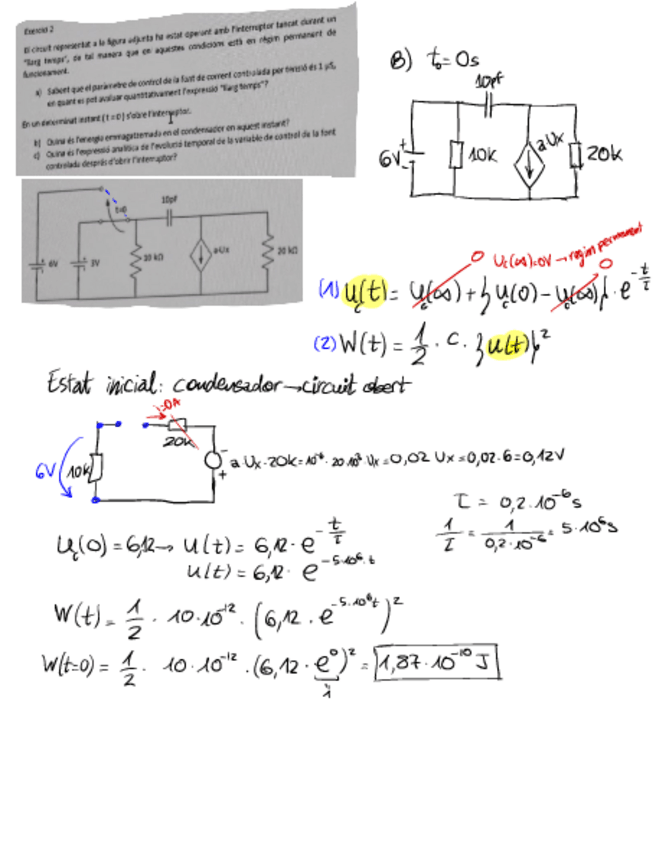 Exercici 2
El circuit representat a la figura adjunta ha estat operant amb l'interruptor tancat durant un
"llarg temps", de tal manera que en aquestes condicions està en règim permanent de
funcionament.
a) Sabent que el paràmetre de control de la font de corrent controlada per tensió és 1 µS,
en quant es pot avaluar quantitativament l'expressió "llarg temps"?
En un determinat instant (t = 0) s'obre l'interruptor.
b) Quina és l'energia emmagatzemada en el condensador en aquest instant?
c) Quina és l'expressió analítica de l'evolució temporal de la variable de control de la font
controlada després d'obrir l'interruptor?
B) t₀ = 0s
10pf
6V
+
-
10k
aUx
20k
t=0
10pF
6V
3V
10 kΩ
aUx
20 kΩ
0 Uc(∞)=0V → règim permanent
0
(1) Uc(t) = Uc(∞) + { Uc(0) - Uc(∞) } · e^(-t/τ)
(2) W(t) = 1/2 · C · { U(t) }²
Estat inicial: condensador → circuit obert
i=0A
20k
6V
10k
-
+
a Ux · 20k = 10⁻⁶ · 20·10³ · Ux = 0,02 Ux = 0,02 · 6 = 0,12V
τ = 0,2·10⁻⁶ s
1/τ = 1/(0,2·10⁻⁶) = 5·10⁶ s
Uc(0) = 6,12 → U(t) = 6,12 · e^(-t/τ)
U(t) = 6,12 · e^(-5·10⁶·t)
W(t) = 1/2 · 10·10⁻¹² · (6,12 · e^(-5·10⁶t))²
W(t=0) = 1/2 · 10·10⁻¹² · (6,12 · e⁰)² = 1,87·10⁻¹⁰ J
1